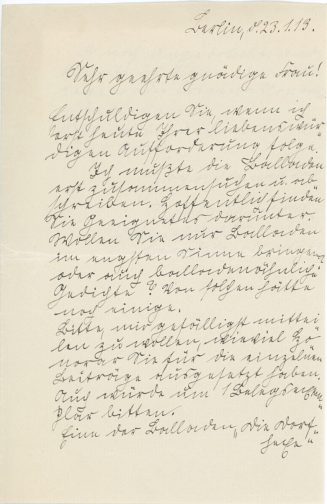 Berlin, d. 23.1.13.
Sehr geehrte gnädige Frau!
Entschuldigen Sie wenn ich
erst heute Ihrer liebenswür-
digen Aufforderung folge.
Ich mußte die Balladen
erst zusammensuchen u. ab-
schreiben. Hoffentlich finden
Sie Geeignetes darunter.
Wollen Sie nur Balladen
im engsten Sinne bringen
oder auch balladenähnliche
Gedichte? Von solchen hätte
noch einige.
Bitte mir gefälligst mittei-
len zu wollen, wieviel Ho-
norar Sie für die einzelnen
Beiträge ausgesetzt haben.
Auch würde um 1 Belegsexem-
plar bitten.
Eine der Balladen, „Die Dorf-
hexe"